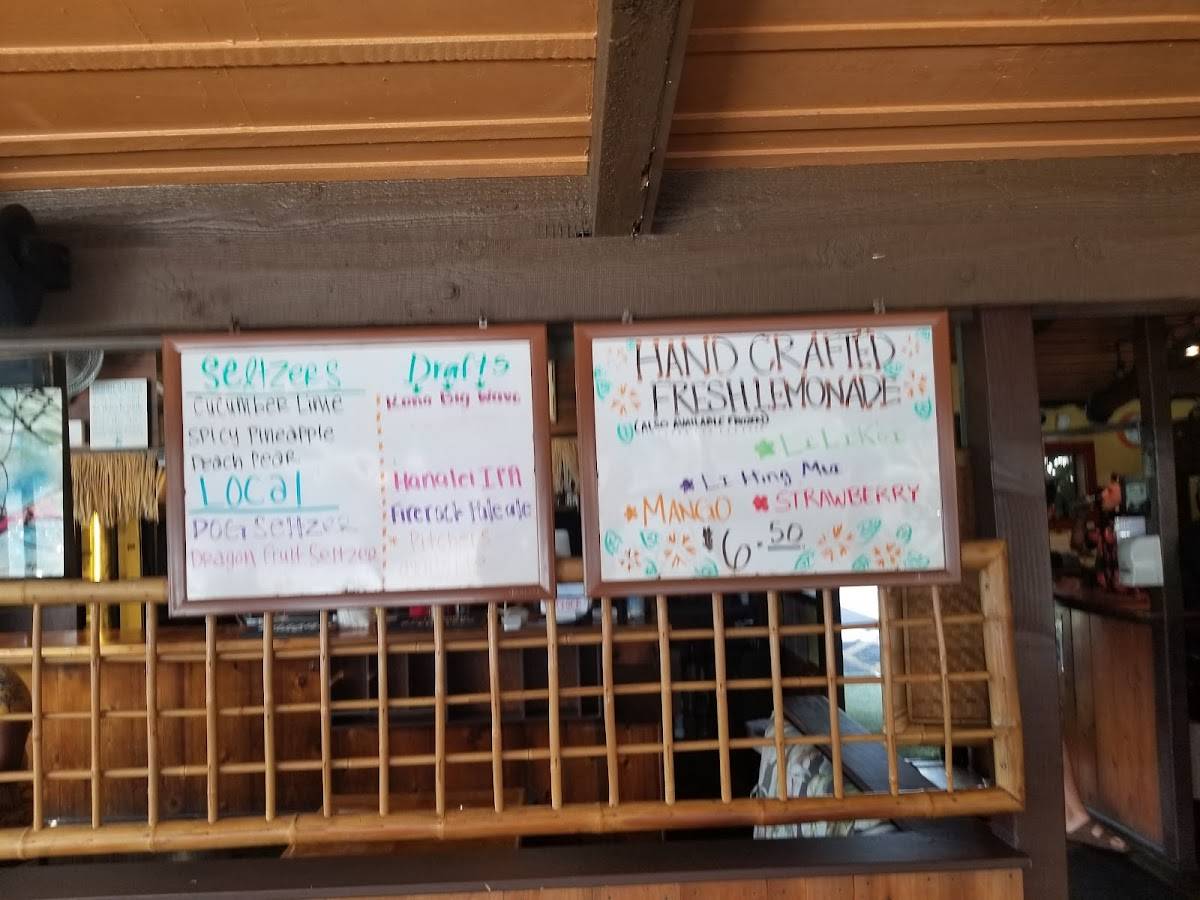 Seltzers
Cucumber Lime
Spicy Pineapple
Peach Pear
Local
POG Seltzer
Dragon Fruit Seltzer
Drafts
Kona Big Wave
Hanalei IPA
Firerock Pale ale
* Pitchers
HAND CRAFTED
FRESH LEMONADE
(ALSO AVAILABLE FROZEN)
LiLiKoi
Li Hing Mui
MANGO
STRAWBERRY
$6.50